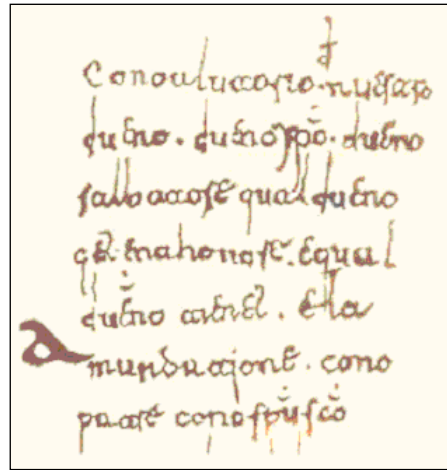 cono aiutorio . de nuestro
dueno . dueno xp̅o . dueno
salbatore qual dueno
get ena honore . equal
dueño tienet . ela
mandatjone . cono
patre cono sp̅u sc̅o